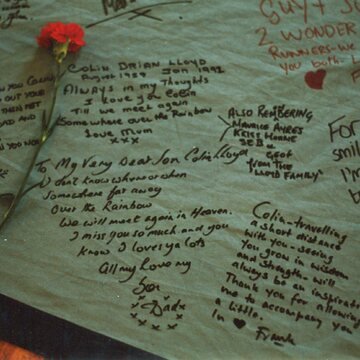 GUY + S
2 WONDER
RUNNERS-W
YOU both L
COLIN BRIAN LLOYD
August 1959 Jan 1992
Always in my Thoughts
I love you Colin
Till we meet again
Somewhere over the Rainbow
Love Mum
x x x
Also Remembering
Maurice Ayres
KRISS HORNE
SEB
Geof
"From THE
LLOYD FAMILY"
For
smil
I'm
To My Very Dear Son Colin Lloyd
I don't know where or when
Somewhere far away
Over the Rainbow
We will meet again in Heaven.
I miss you so much and you
Know I loves ya lots
All my love my
Son
Dad
x x x x x
Colin-travelling
a short distance
with you-seeing
you grow in wisdom
and strength-will
always be an inspirati
Thank you for allowing
me to accompany you
a little.
In ♥ Frank